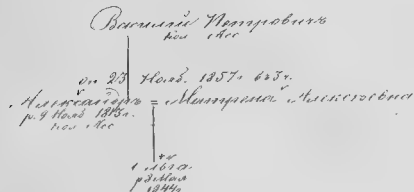 Василий Петровичъ
кол. Асс
23 Нояб. 1857г.
Александръ = Матрена Алексѣевна
р. 9 Нояб. 1813г.
кол. Асс
Ольга
р. 3 Мая
1844г.